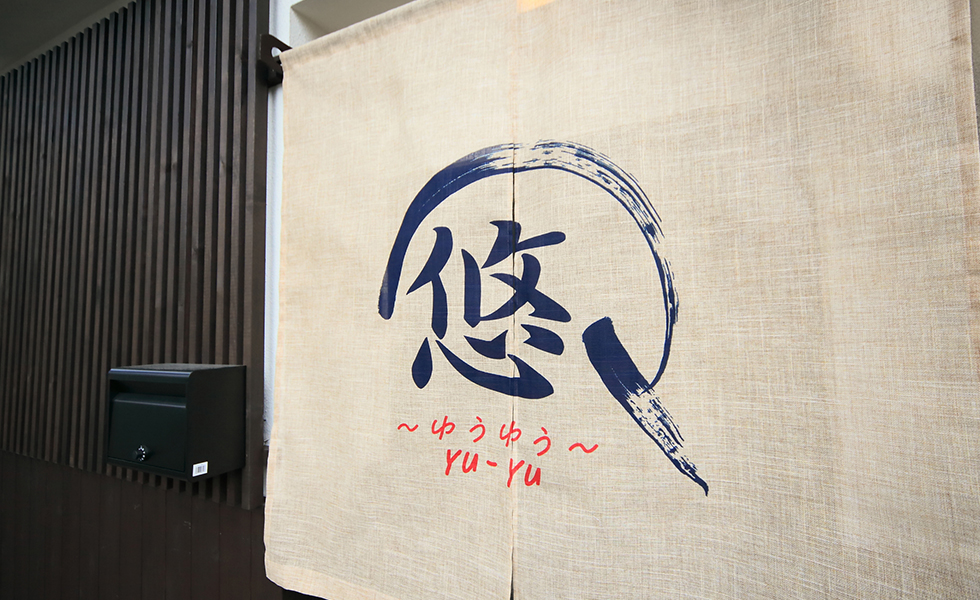 悠
～ゆうゆう～
YU-YU